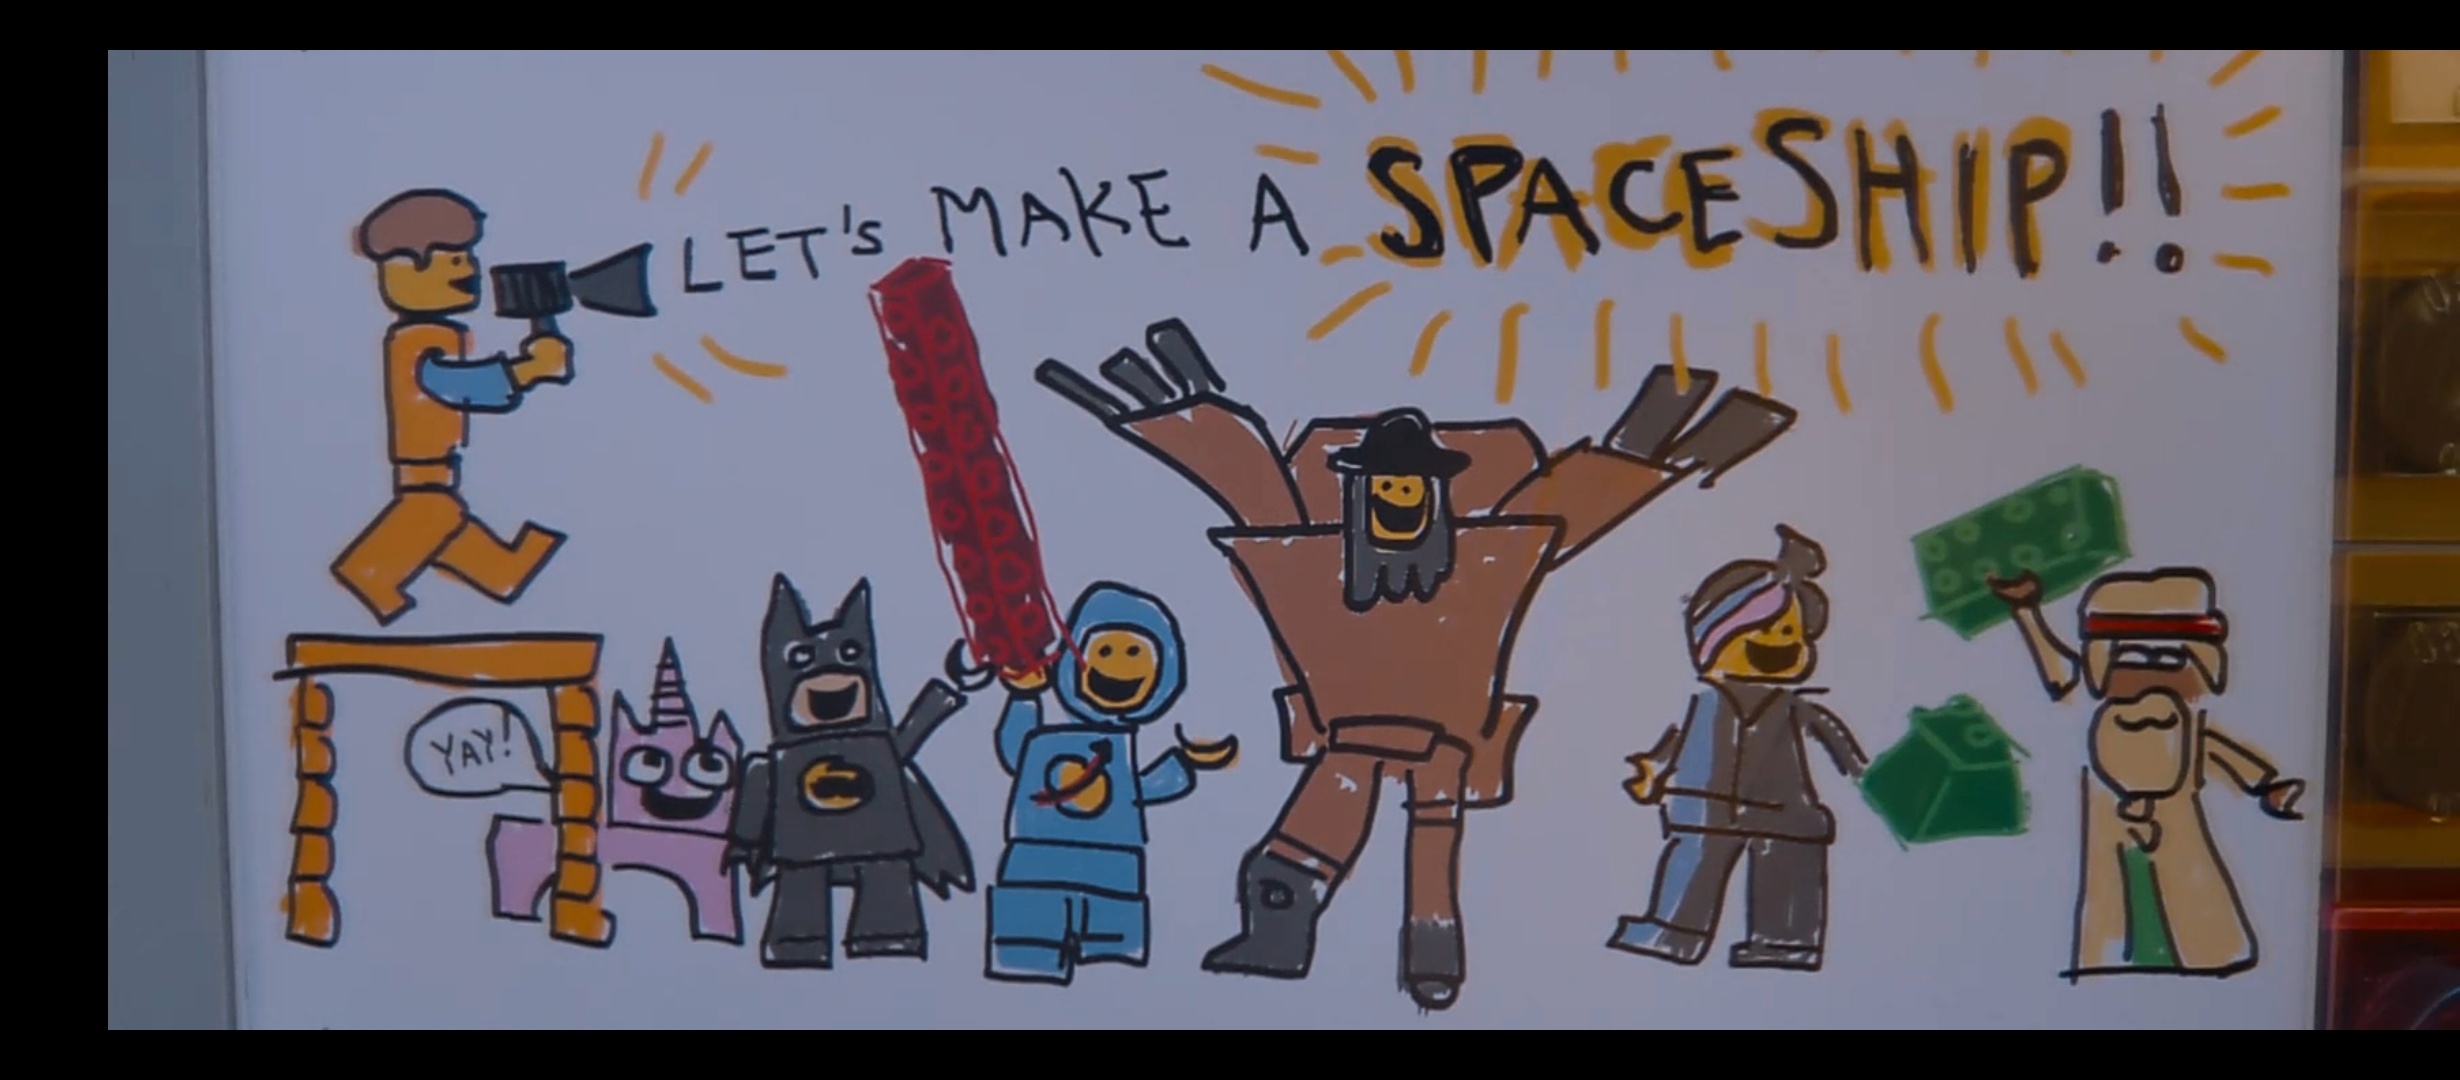 LET's MAKE A SPACESHIP!!
YAY!